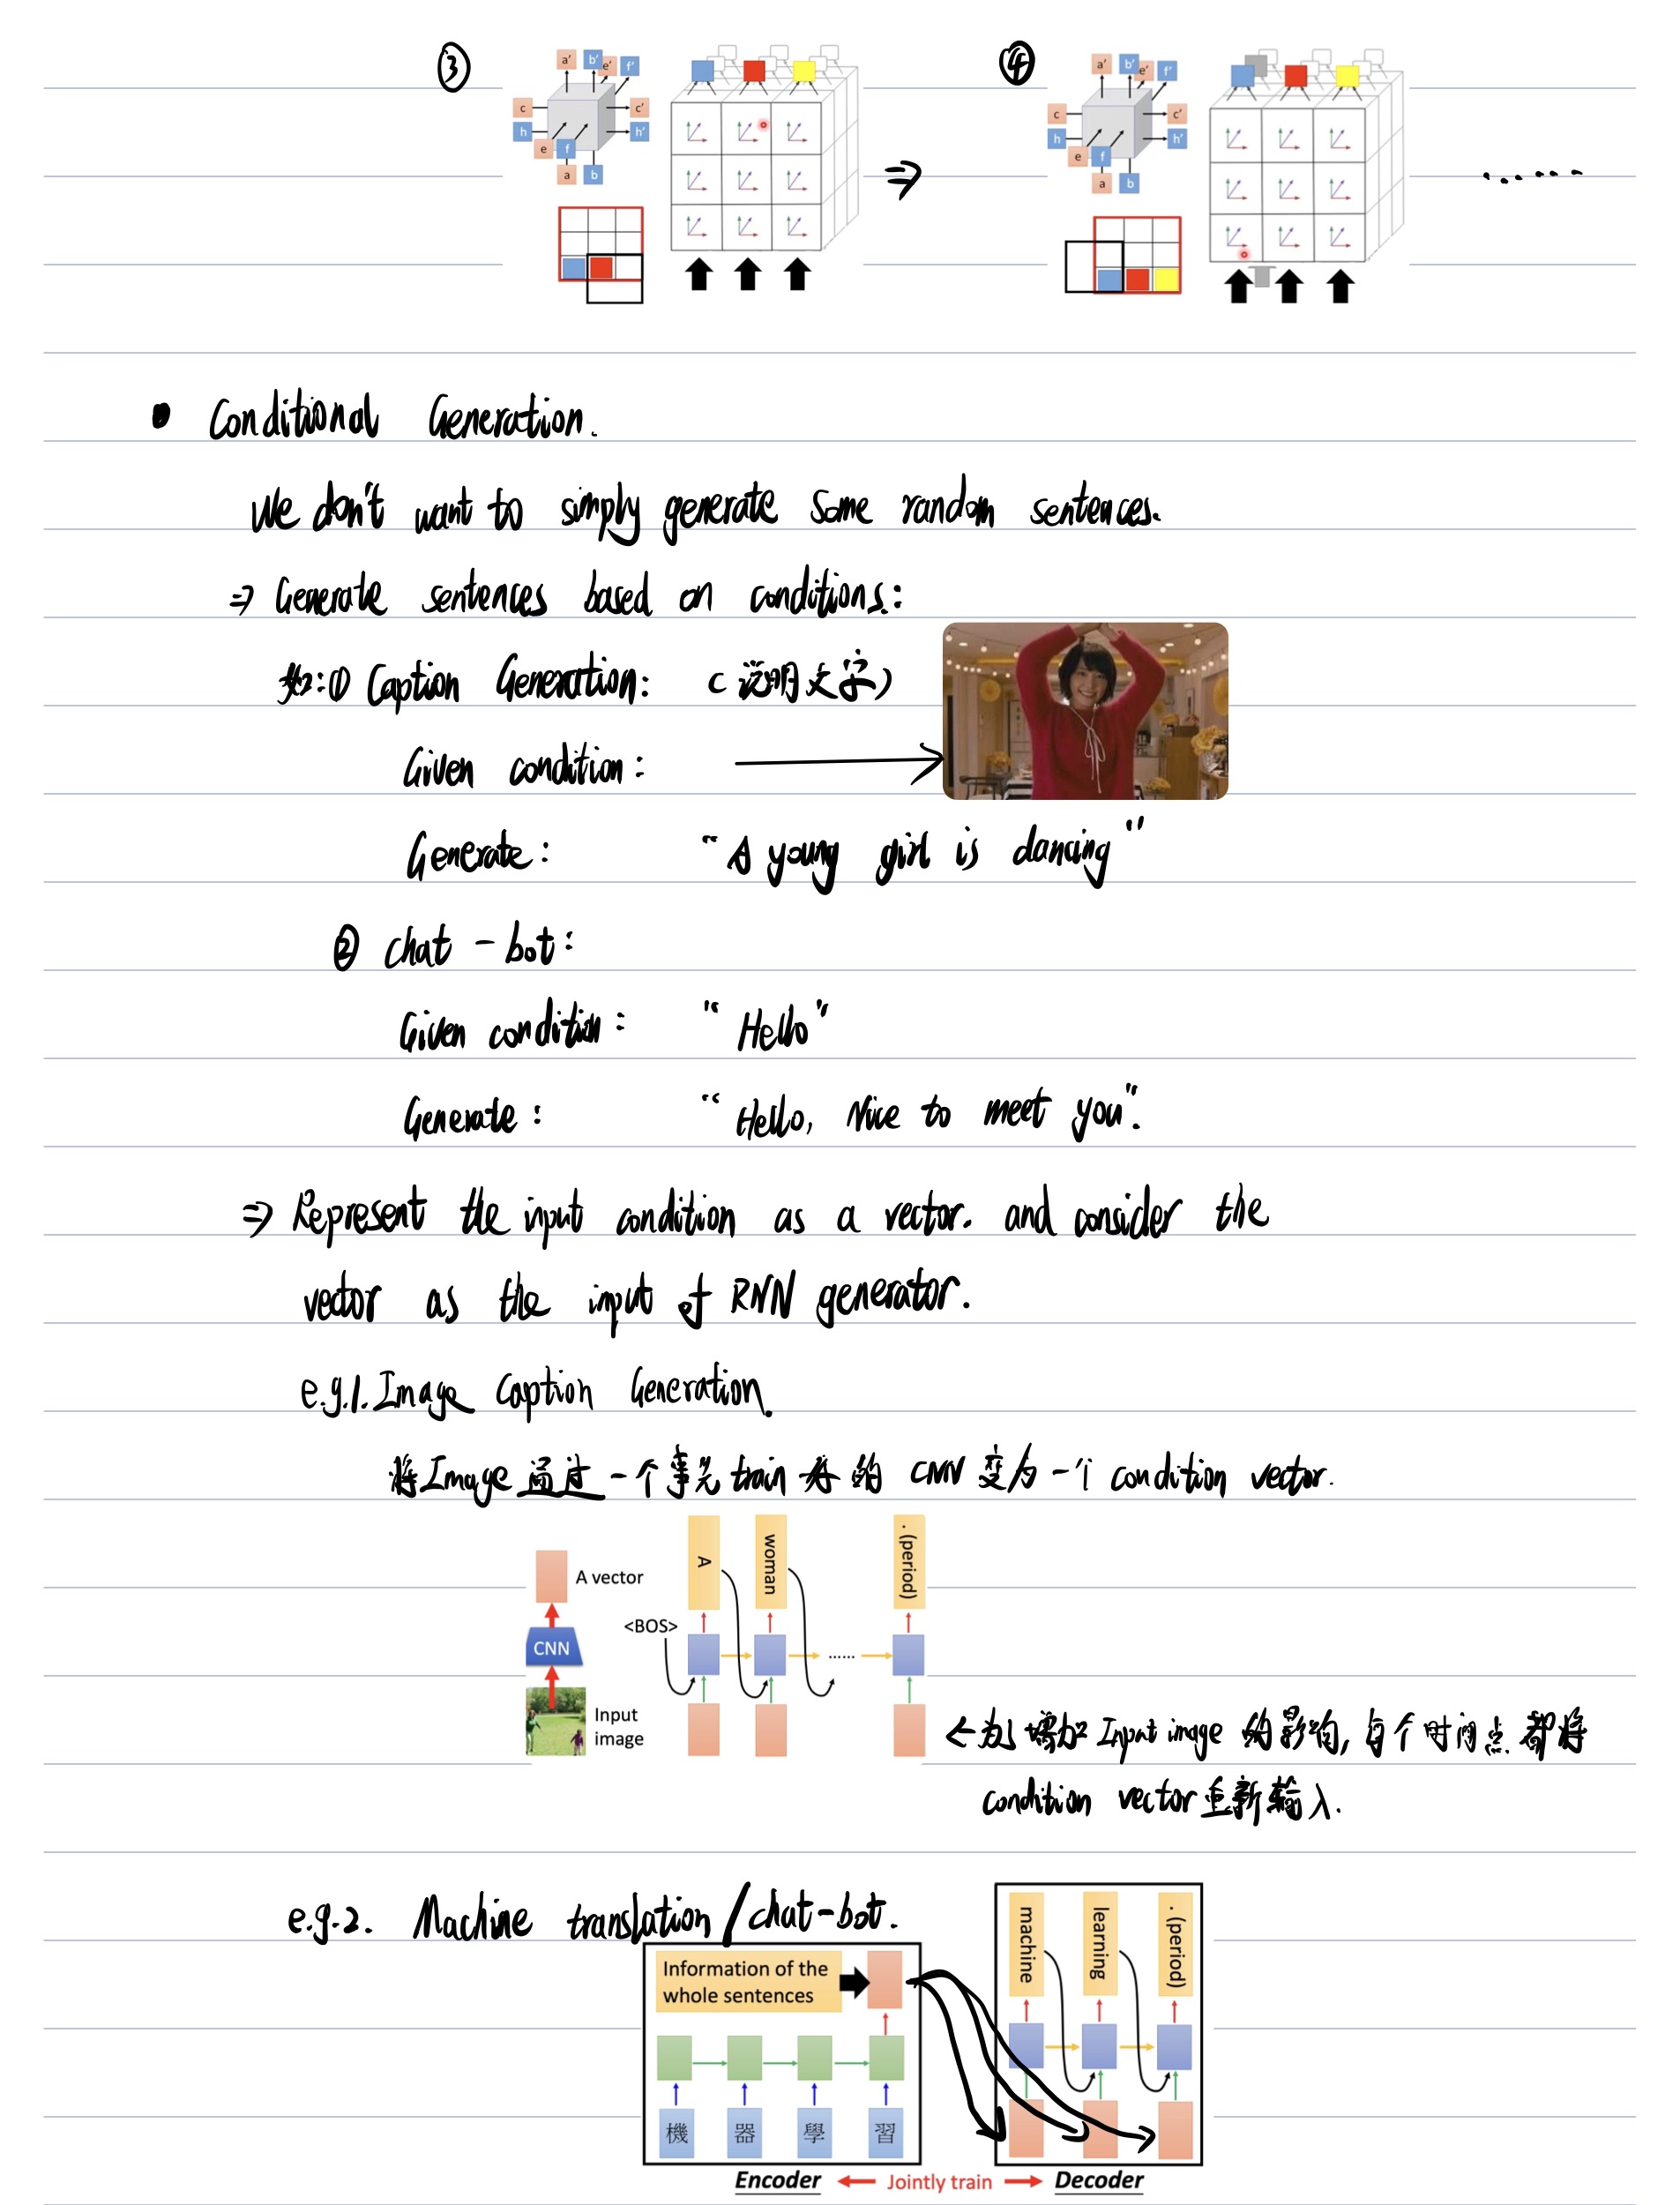 ③
a' b' e' f'
c c'
h h'
e f
a b
④
a' b' e' f'
c c'
h h'
e f
a b
⇒
......
• Conditional Generation.
We don't want to simply generate some random sentences.
⇒ Generate sentences based on conditions:
如:① Caption Generation: (说明文字)
Given condition:
Generate: "A young girl is dancing"
② chat-bot:
Given condition: "Hello"
Generate: "Hello, Nice to meet you".
⇒ Represent the input condition as a vector. and consider the
vector as the input of RNN generator.
e.g.1. Image Caption Generation.
将Image通过一个事先train好的CNN变为一个condition vector.
A vector
CNN
Input
image
<BOS>
A
woman
. (period)
......
←为了增加Input image的影响,每个时间点都将
condition vector重新输入.
e.g.2. Machine translation/chat-bot.
Information of the
whole sentences
機 器 學 習
machine
learning
. (period)
Encoder Jointly train Decoder